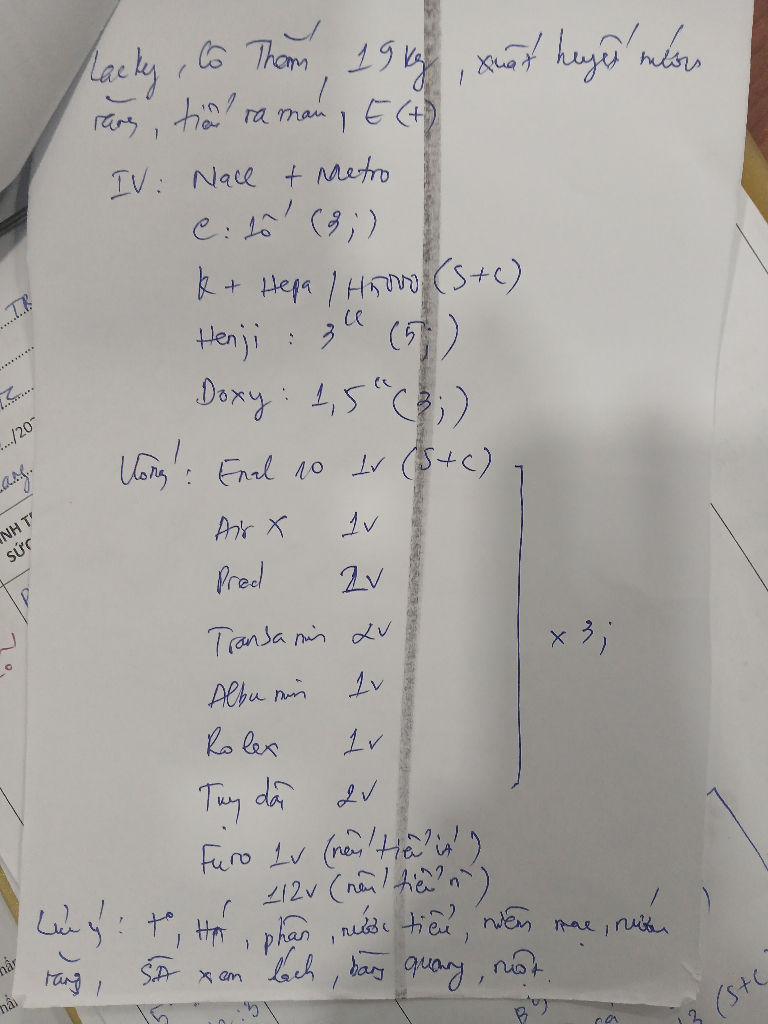 Lacky, Cô Thắm, 19 kg, xuất huyết nướu
răng, tiểu ra máu, E (+)
IV: NaCl + Metro
C: 1ố (3;)
K + Hepa / H5000 (S+C)
Henji : 3cc (5;)
Doxy: 1,5cc (3;)
Uống: Enal 10 1v (S+C)
Air X 1v
Pred 2v
Transamin 2v
Albumin 1v
Rolex 1v
x 3;
Tuỵ đấu 2v
Furo 1v (nếu tiểu ít)
1/2v (nếu tiểu n`)
Lưu ý: t°, HA, phân, nước tiểu, niêm mạc, nướu
răng, SÂ xem lách, bàng quang, ruột